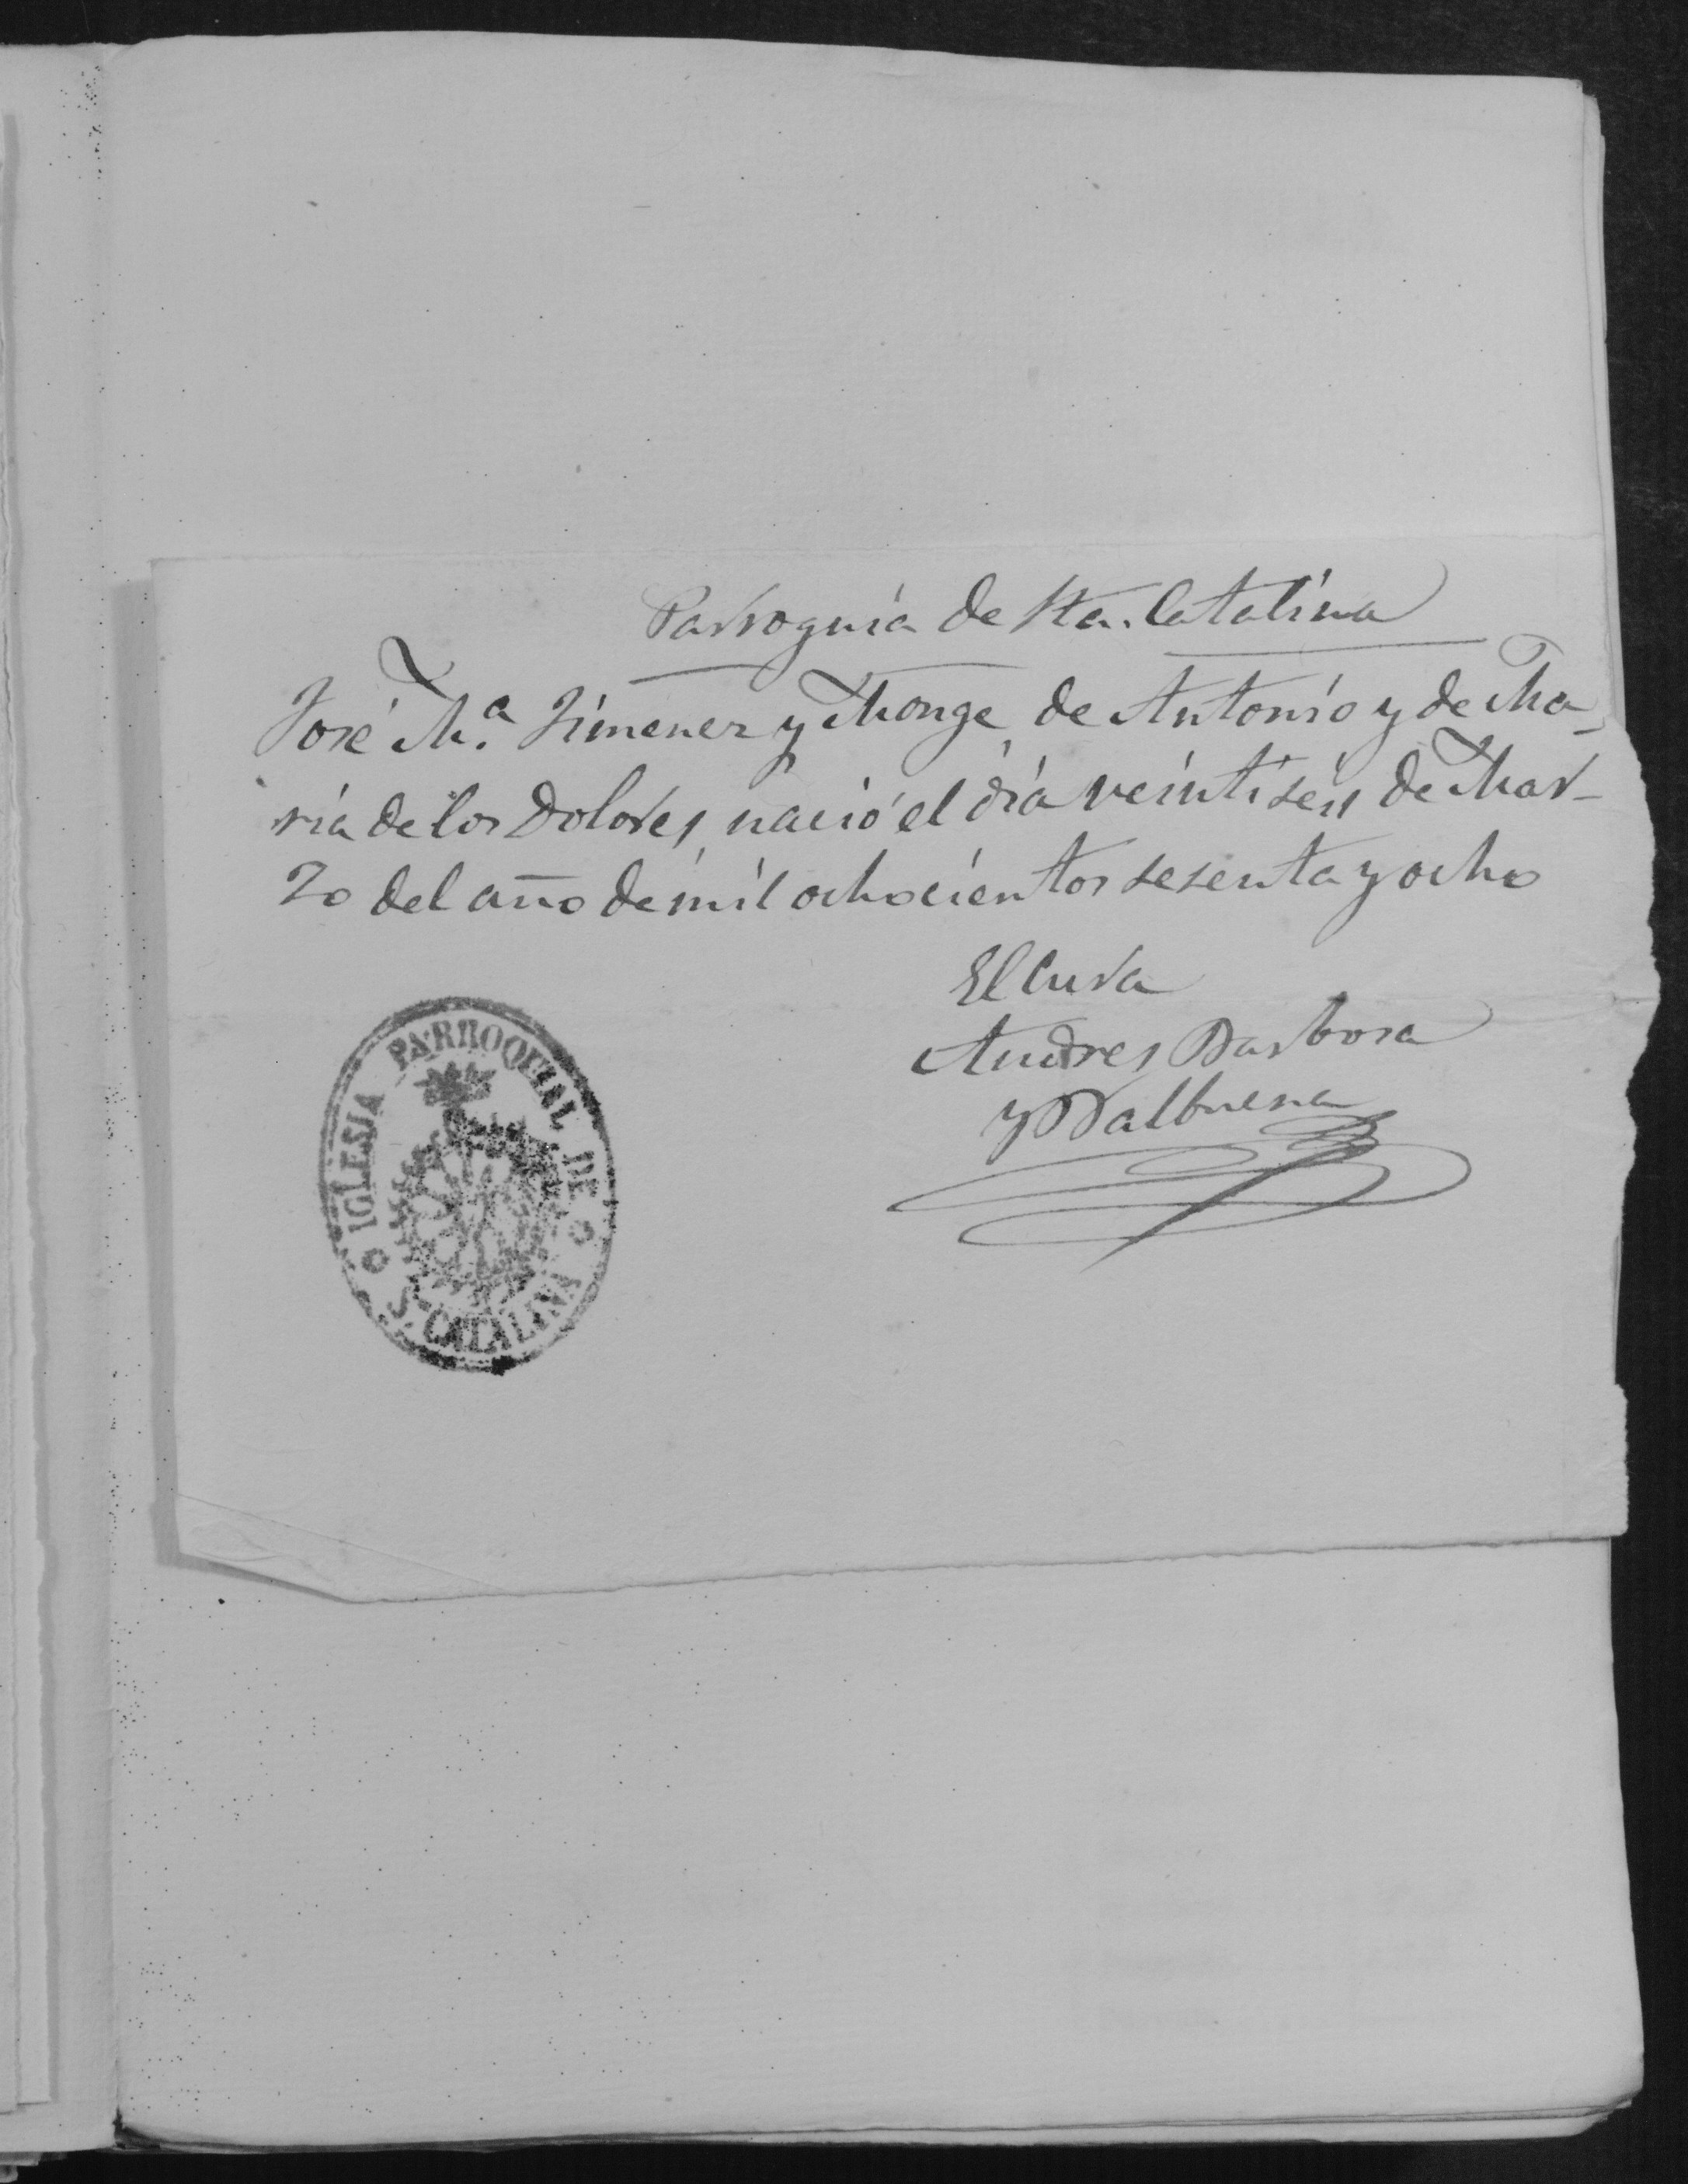 Parroquia de Sta. Catalina
José M.ª Jimenez y Monge, de Antonio y de Ma-
ria de los Dolores, nació el día veintiséis de Mar-
zo del año de mil ochocientos sesenta y ocho
El Cura
Andres Barbosa
y Balbuena
IGLESIA PARROQUIAL DE
S. CATALINA